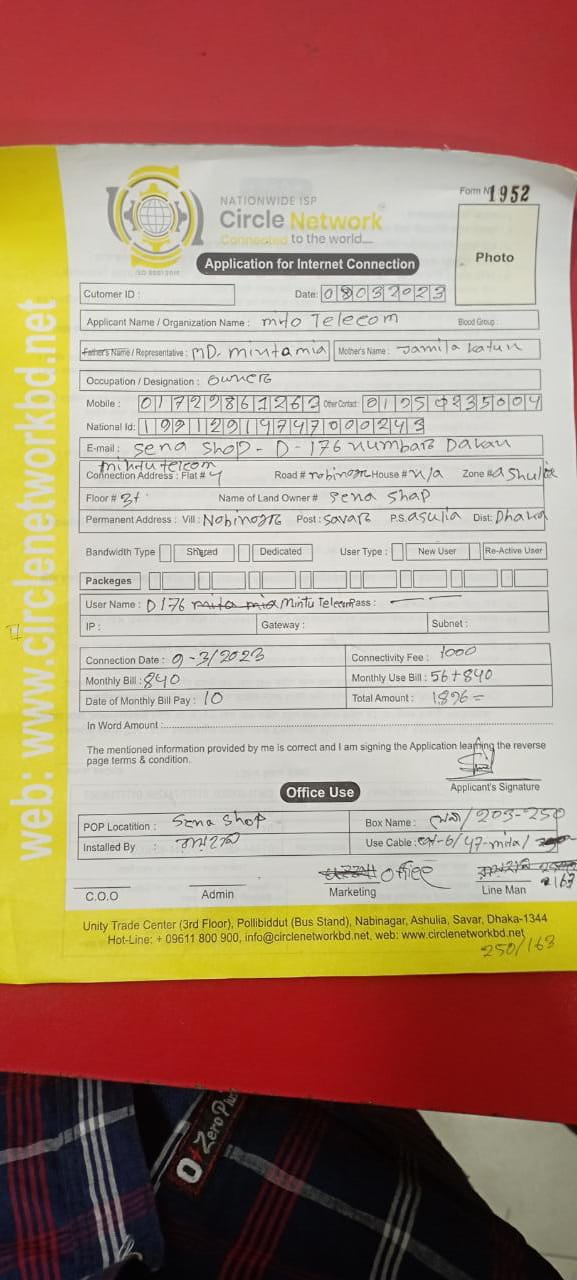 Form N 1952
NATIONWIDE ISP
Circle Network
Connected to the world....
ISO 9001:2015
Application for Internet Connection
Photo
Cutomer ID :
Date: 08032023
Applicant Name / Organization Name : mito Telecom Blood Group :
Father's Name / Representative : MD. mintu mia Mother's Name : Jamila Katun
Occupation / Designation : Owner
Mobile : 01728861263 Other Contact
National Id: 19912919747000243
E-mail : Sena Shop - D - 176 numbar Dakan
mintu telcom
Connection Address : Flat # 4 Road # nobinogr House # N/a Zone # aShulia
Floor # 3t Name of Land Owner # Sena Shap
Permanent Address : Vill : Nobinogr Post : Savar P.S. asulia Dist: Dhaka
Bandwidth Type Shared Dedicated User Type : New User Re-Active User
Packeges
User Name : D176 mito mia Mintu Telecom Pass :
IP : Gateway : Subnet :
Connection Date : 9-3/2023 Connectivity Fee : 1000
Monthly Bill : 840 Monthly Use Bill : 56+840
Date of Monthly Bill Pay : 10 Total Amount : 1896=
In Word Amount :
The mentioned information provided by me is correct and I am signing the Application learning the reverse
page terms & condition.
Applicant's Signature
Office Use
POP Locatition : Sena Shop Box Name : 203-250
Installed By : Use Cable : 6/47-mita/
Office
163
C.O.O Admin Marketing Line Man
Unity Trade Center (3rd Floor), Pollibiddut (Bus Stand), Nabinagar, Ashulia, Savar, Dhaka-1344
Hot-Line: + 09611 800 900, info@circlenetworkbd.net, web: www.circlenetworkbd.net
250/163
web: www.circlenetworkbd.net
Zero Plus